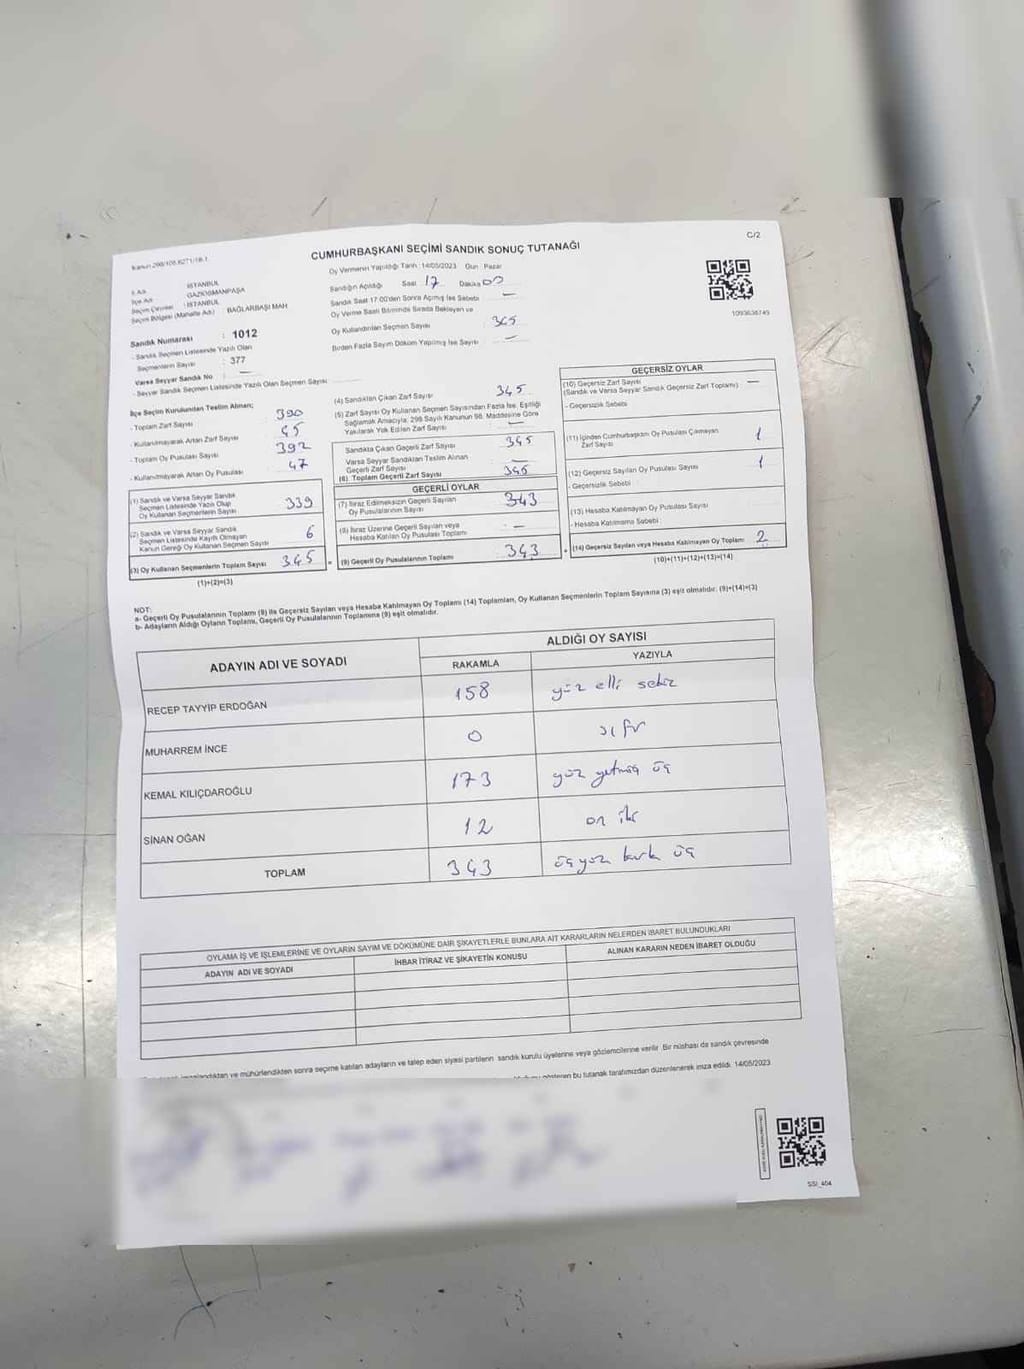 C/2
CUMHURBAŞKANI SEÇİMİ SANDIK SONUÇ TUTANAĞI
Oy Vermenin Yapıldığı Tarih : 14/05/2023 Gün : Pazar
İl Adı : İSTANBUL
İlçe Adı : GAZİOSMANPAŞA
Seçim Çevresi : İSTANBUL
Seçim Bölgesi (Mahalle Adı) : BAĞLARBAŞI MAH
Sandık Numarası : 1012
- Sandık Seçmen Listesinde Yazılı Olan
Seçmenlerin Sayısı : 377
Varsa Seyyar Sandık No : —
- Seyyar Sandık Seçmen Listesinde Yazılı Olan Seçmen Sayısı
Sandığın Açıldığı Saat 17 Dakika 00
Sandık Saat 17.00'den Sonra Açılmış İse Sebebi —
Oy Verme Saati Bitiminde Sırada Bekleyen ve
Oy Kullandırılan Seçmen Sayısı 345
Birden Fazla Sayım Döküm Yapılmış İse Sayısı —
1093636745
İlçe Seçim Kurulundan Teslim Alınan;
- Toplam Zarf Sayısı 390
- Kullanılmayarak Artan Zarf Sayısı 45
- Toplam Oy Pusulası Sayısı 392
- Kullanılmayarak Artan Oy Pusulası 47
(1) Sandık ve Varsa Seyyar Sandık
Seçmen Listesinde Yazılı Olup
Oy Kullanan Seçmenlerin Sayısı 339
(2) Sandık ve Varsa Seyyar Sandık
Seçmen Listesinde Kayıtlı Olmayan
Kanun Gereği Oy Kullanan Seçmen Sayısı 6
(3) Oy Kullanan Seçmenlerin Toplam Sayısı 345
(1)+(2)=(3)
(4) Sandıktan Çıkan Zarf Sayısı 345
(5) Zarf Sayısı Oy Kullanan Seçmen Sayısından Fazla İse; Eşitliği
Sağlamak Amacıyla; 298 Sayılı Kanunun 98. Maddesine Göre
Yakılarak Yok Edilen Zarf Sayısı —
Sandıkta Çıkan Geçerli Zarf Sayısı 345
Varsa Seyyar Sandıktan Teslim Alınan
Geçerli Zarf Sayısı —
(6) Toplam Geçerli Zarf Sayısı 345
GEÇERLİ OYLAR
(7) İtiraz Edilmeksizin Geçerli Sayılan
Oy Pusulalarının Sayısı 343
(8) İtiraz Üzerine Geçerli Sayılan veya
Hesaba Katılan Oy Pusulası Toplamı —
= (9) Geçerli Oy Pusulalarının Toplamı 343
GEÇERSİZ OYLAR
(10) Geçersiz Zarf Sayısı —
(Sandık ve Varsa Seyyar Sandık Geçersiz Zarf Toplamı)
- Geçersizlik Sebebi
(11) İçinden Cumhurbaşkanı Oy Pusulası Çıkmayan
Zarf Sayısı 1
(12) Geçersiz Sayılan Oy Pusulası Sayısı 1
- Geçersizlik Sebebi
(13) Hesaba Katılmayan Oy Pusulası Sayısı
- Hesaba Katılmama Sebebi
+ (14) Geçersiz Sayılan veya Hesaba Katılmayan Oy Toplamı 2
(10)+(11)+(12)+(13)=(14)
NOT:
a- Geçerli Oy Pusulalarının Toplamı (9) ile Geçersiz Sayılan veya Hesaba Katılmayan Oy Toplamı (14) Toplamları, Oy Kullanan Seçmenlerin Toplam Sayısına (3) eşit olmalıdır. (9)+(14)=(3)
b- Adayların Aldığı Oyların Toplamı, Geçerli Oy Pusulalarının Toplamına (9) eşit olmalıdır.
ADAYIN ADI VE SOYADI ALDIĞI OY SAYISI
RAKAMLA YAZIYLA
RECEP TAYYİP ERDOĞAN 158 yüz elli sekiz
MUHARREM İNCE 0 sıfır
KEMAL KILIÇDAROĞLU 173 yüz yetmiş üç
SİNAN OĞAN 12 on iki
TOPLAM 343 üçyüz kırk üç
OYLAMA İŞ VE İŞLEMLERİNE VE OYLARIN SAYIM VE DÖKÜMÜNE DAİR ŞİKAYETLERLE BUNLARA AİT KARARLARIN NELERDEN İBARET BULUNDUKLARI
ADAYIN ADI VE SOYADI İHBAR İTİRAZ VE ŞİKAYETİN KONUSU ALINAN KARARIN NEDEN İBARET OLDUĞU
ve mühürlendikten sonra seçime katılan adayların ve talep eden siyasi partilerin sandık kurulu üyelerine veya gözlemcilerine verilir. Bir nüshası da sandık çevresinde
bu tutanak tarafımızdan düzenlenerek imza edildi. 14/05/2023
SSI_404